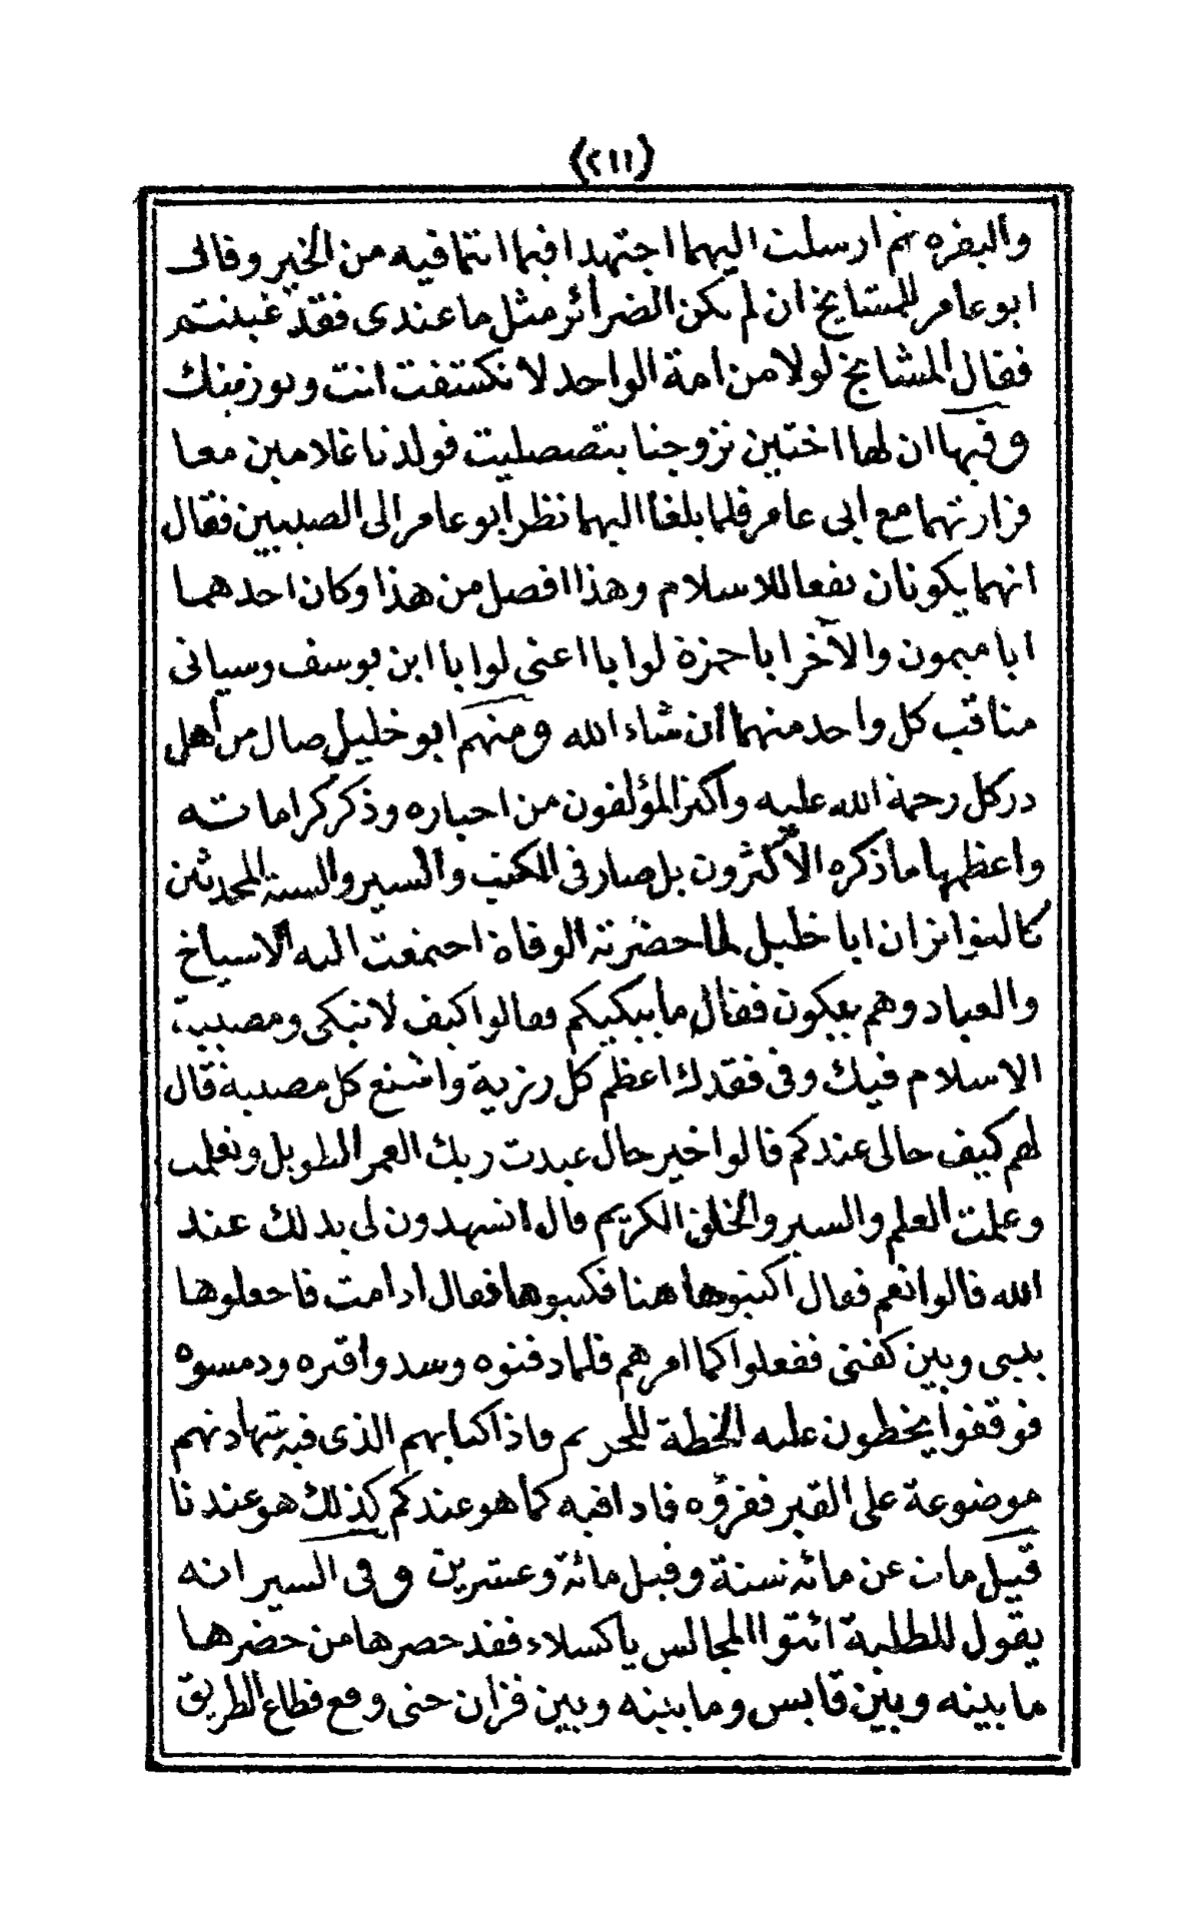 (٢١١)
والبقره ثم ارسلت اليهما اجتهدا فيما انتما فيه من الخير وقال
ابو عامر للمشايخ ان لم تكن الضرائر مثل ما عندى فقد غبنتم
فقال المشايخ لولا من امة الواحد لا نكشفت انت وبو زمينك
وفيها ان لها اختين تزوجتا بتصصليت فولدتا غلامين معا
فزارتهما مع ابى عامر فلما بلغا اليهما نظر ابو عامر الى الصبيين فقال
انهما يكونان نفعا للاسلام وهذا افضل من هذا وكان احدهما
ابا ميمون والآخر ابا حمزة لوابا اعنى لوابا ابن يوسف وسياتى
مناقب كل واحد منهما ان شاء الله ومنهم ابو خليل صال من اهل
دركل رحمة الله عليه واكثر المؤلفون من اخباره وذكر كراماته
واعظمها ما ذكره الأكثرون بل صار فى الكتب والسير والسنة المحدثين
كالتواتر ان ابا خليل لما حضرته الوفاة اجتمعت اليه الاشياخ
والعباد وهم يبكون فقال ما يبكيكم فقالوا كيف لا نبكى ومصيبة
الاسلام فيك وفى فقدك اعظم كل رزية واشنع كل مصيبة قال
لهم كيف حالى عندكم قالوا خير حال عبدت ربك العمر الطويل وتعلمت
وعلمت العلم والسير والخلق الكريم قال اتشهدون لى بذلك عند
الله قالوا نعم فقال اكتبوها هنا فكتبوها فقال اذا مت فاجعلوها
بينى وبين كفنى ففعلوا كما امرهم فلما دفنوه وسدوا قبره ودمسوه
فوقفوا يخطون عليه الخطة للحريم فاذا كتابهم الذى فيه شهادتهم
موضوعة على القبر فقرؤه فاذا فيه كما هو عندكم كذلك هو عندنا
قيل مات عن مائة سنة وقيل مائة وعشرين وفى السير انه
يقول للطلبة ائتوا المجالس يا كسلاء فقد حصرها من حضرها
ما بينه وبين قابس وما بينه وبين فزان حتى وقع قطاع الطريق